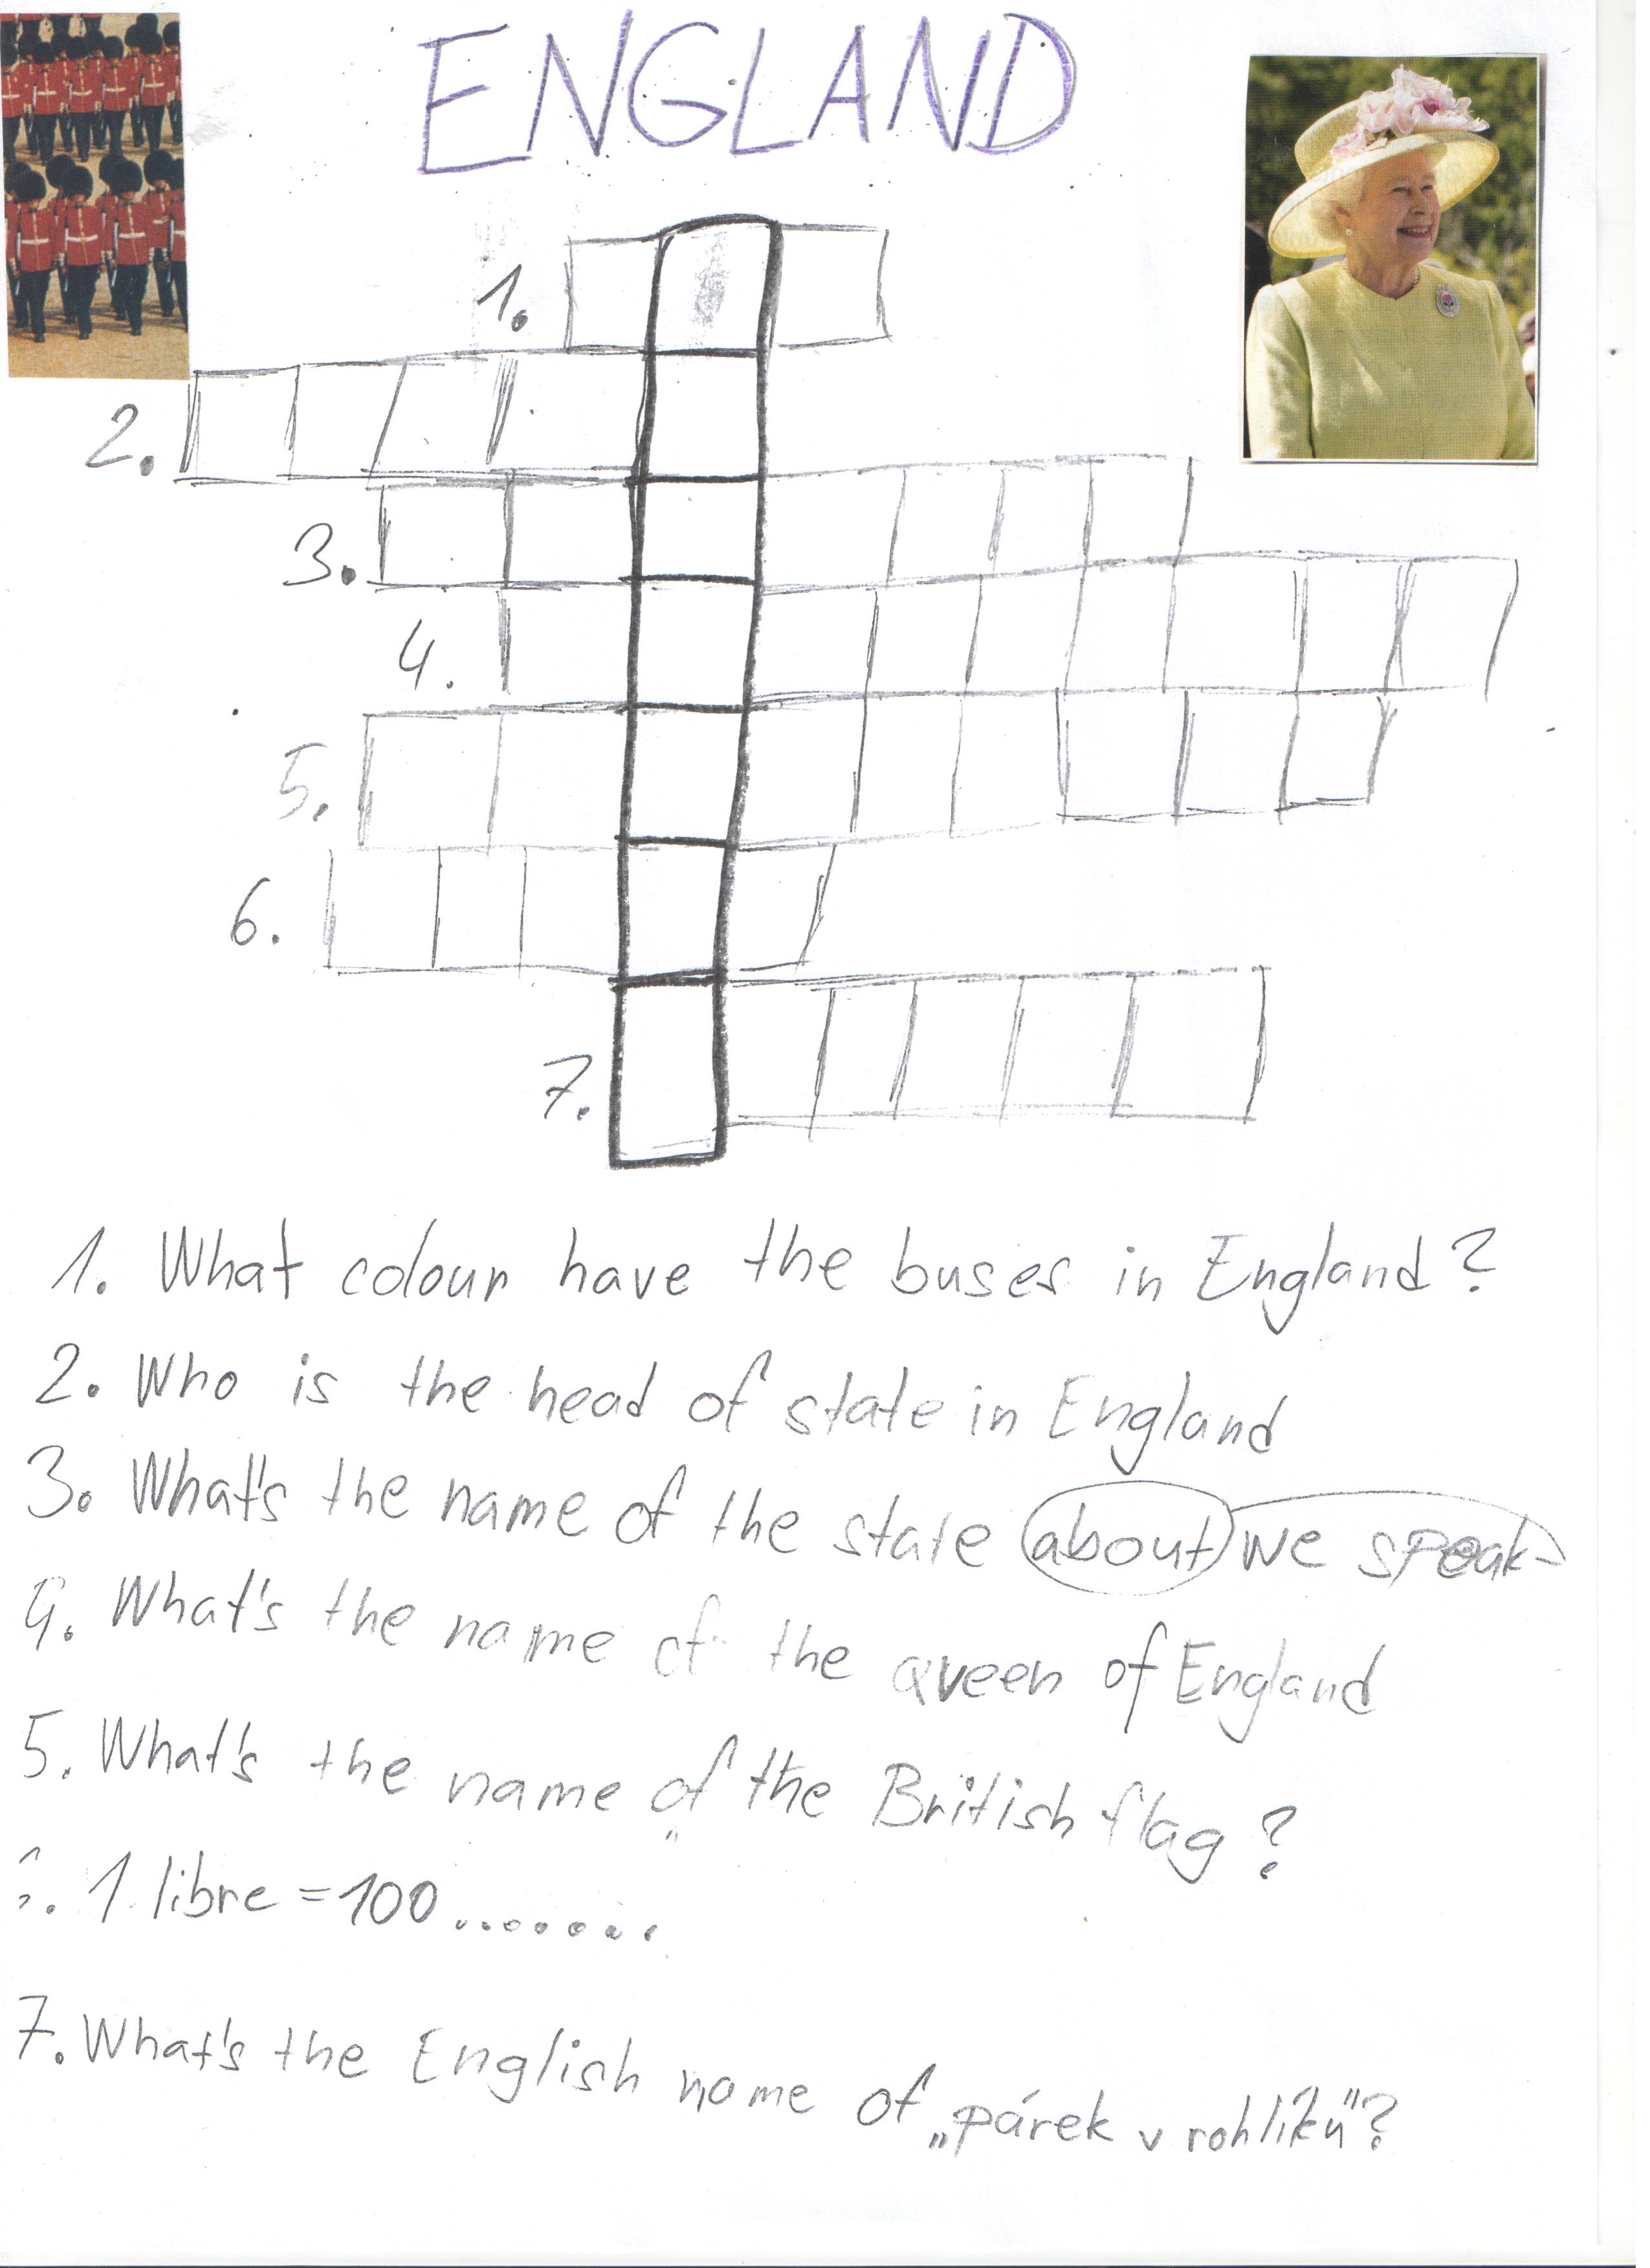 ENGLAND
1.
2.
3.
4.
5.
6.
7.
1. What colour have the buses in England?
2. Who is the head of state in England
3. What's the name of the state about we speak
4. What's the name of the queen of England
5. What's the name of the British flag?
1 libre = 100 ........
7. What's the English name of „párek v rohlíků"?